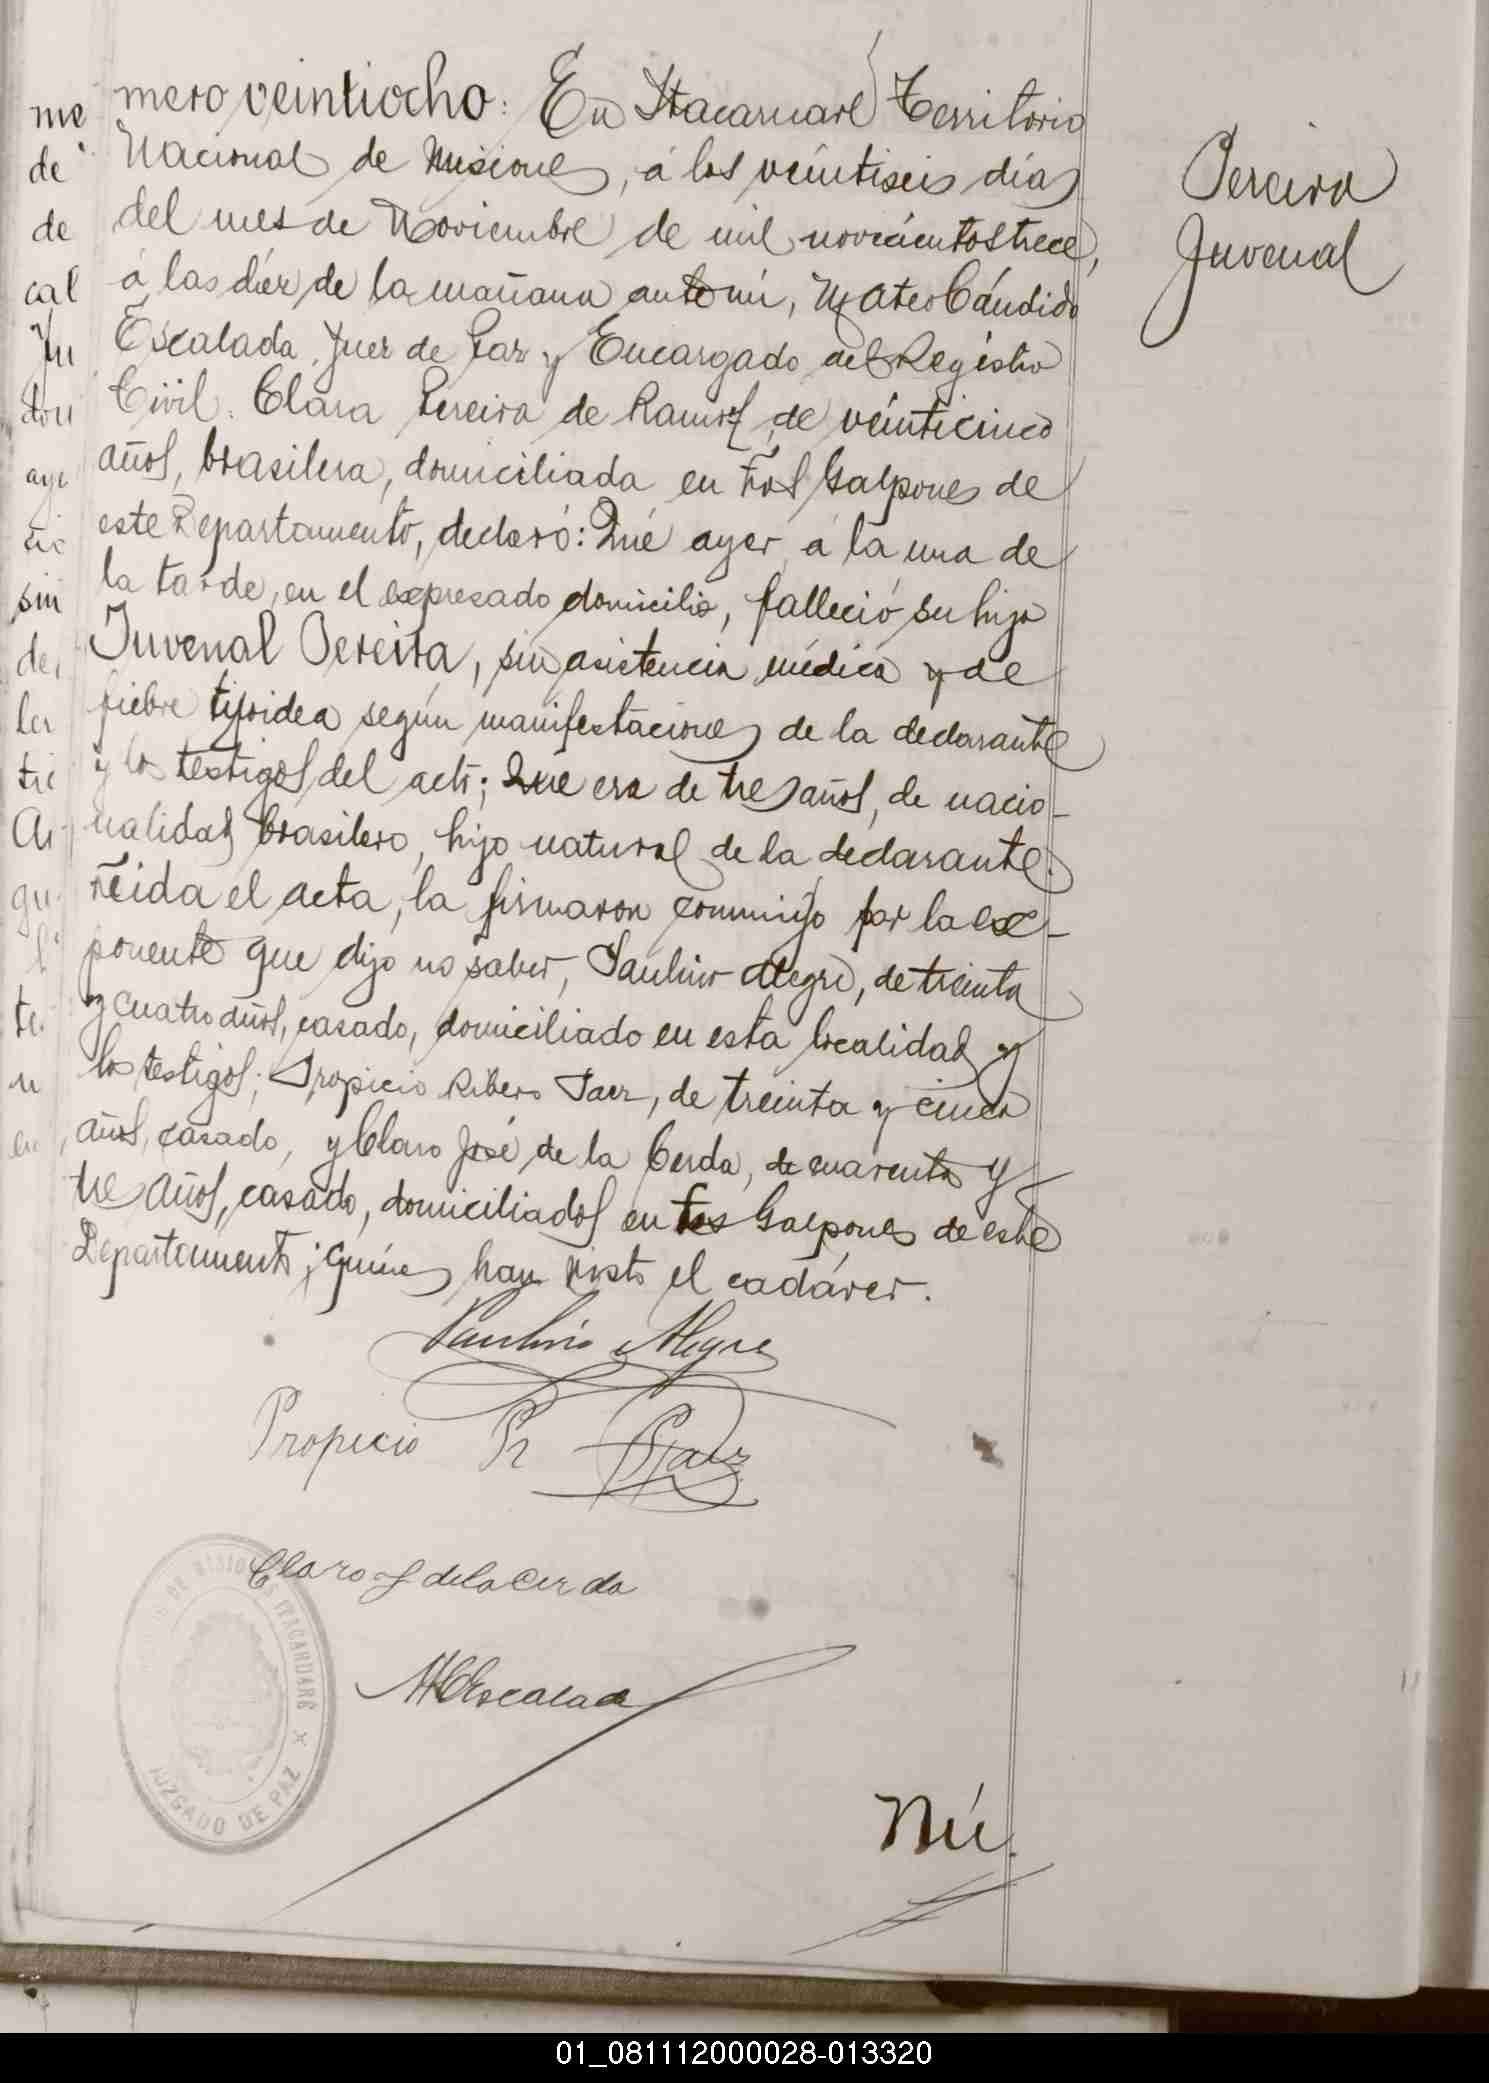 mero veintiocho: En Itacaruaré Territorio
Nacional de Misiones, á los veintiseis dias
del mes de Noviembre de mil novecientos trece,
á las diez de la mañana ante mi, Mateo Cándido
Escalada, Juez de Paz y Encargado del Registro
Civil. Clara Pereira de Ramos, de veinticinco
años, brasilera, domiciliada en Tres Galpones de
este Departamento, declaró: Que ayer á la una de
la tarde, en el expresado domicilio, falleció su hijo
Juvenal Pereira, sin asistencia médica y de
fiebre tifoidea según manifestaciones de la declarante
y los testigos del acto; Que era de tres años, de nacio-
nalidad brasilero, hijo natural de la declarante.
Leida el acta, la firmaron conmigo por la ex-
ponente que dijo no saber, Paulino Alegre, de treinta
y cuatro años, casado, domiciliado en esta localidad y
los testigos; Propicio Ribero Paez, de treinta y cinco
años, casado, y Claro José de la Cerda, de cuarenta y
tres años, casado, domiciliados en Tres Galpones de este
Departamento; quienes han visto el cadáver.
Paulino Alegre
Propicio R Paez
Claro J de la Cerda
MCEscalada
Nú
Pereira
Juvenal
me
de
de
cal
sin
de
ler
te
DE MISIONES ITACARUARÉ
JUZGADO DE PAZ
01_081112000028-013320